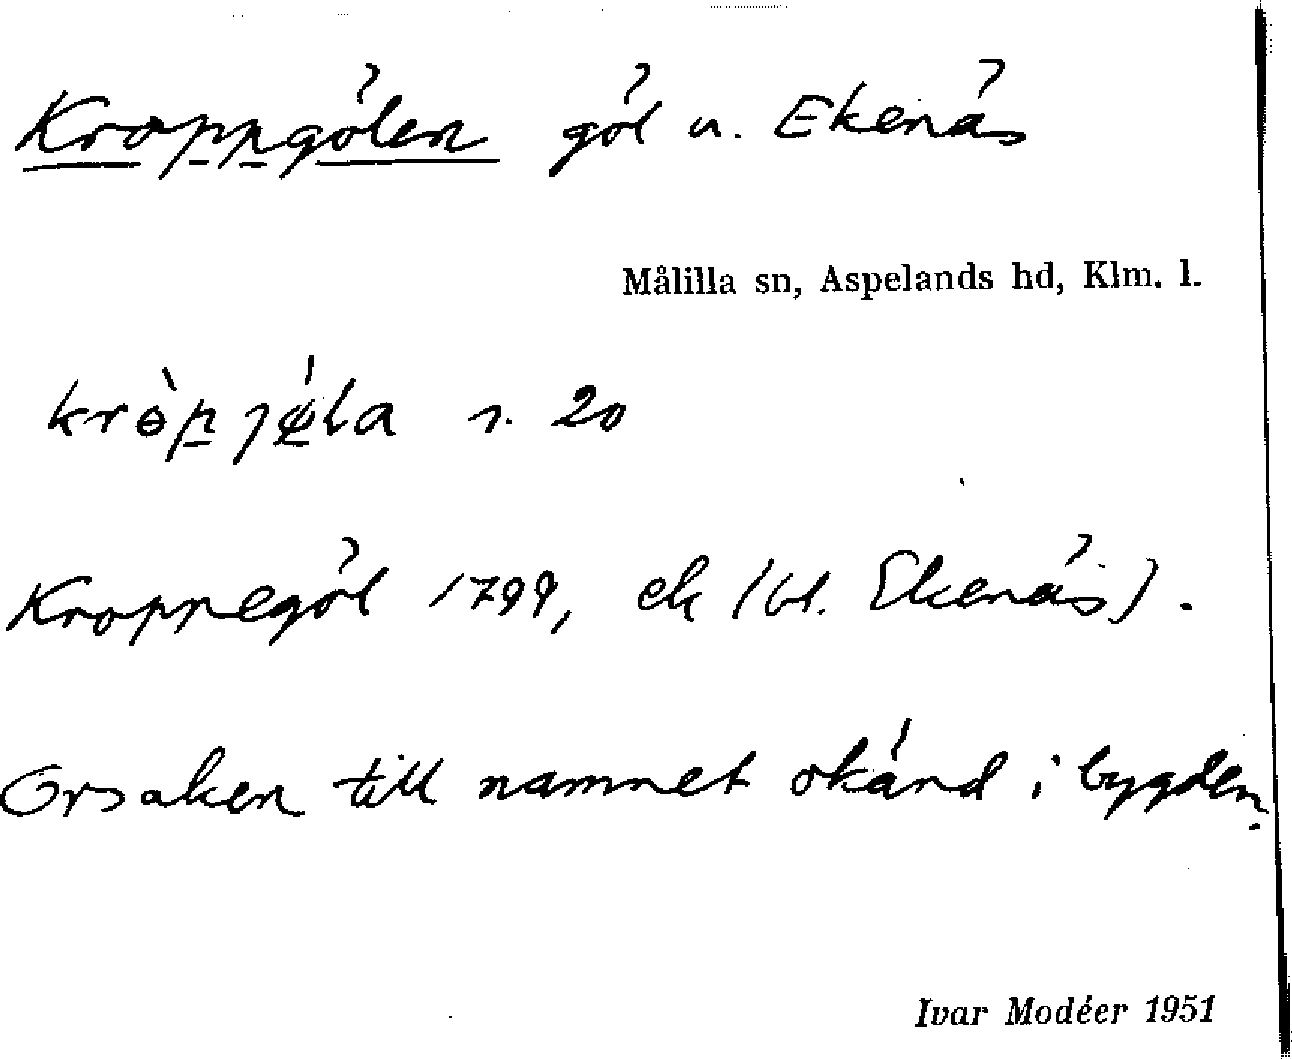 Kroppgölen göl u. Ekenäs
Målilla sn, Aspelands hd, Klm. l.
s. 20
Kroppegöl 1799, ek (bl. Ekenäs).
Orsaken till namnet okänd i bygden.
Ivar Modéer 1951